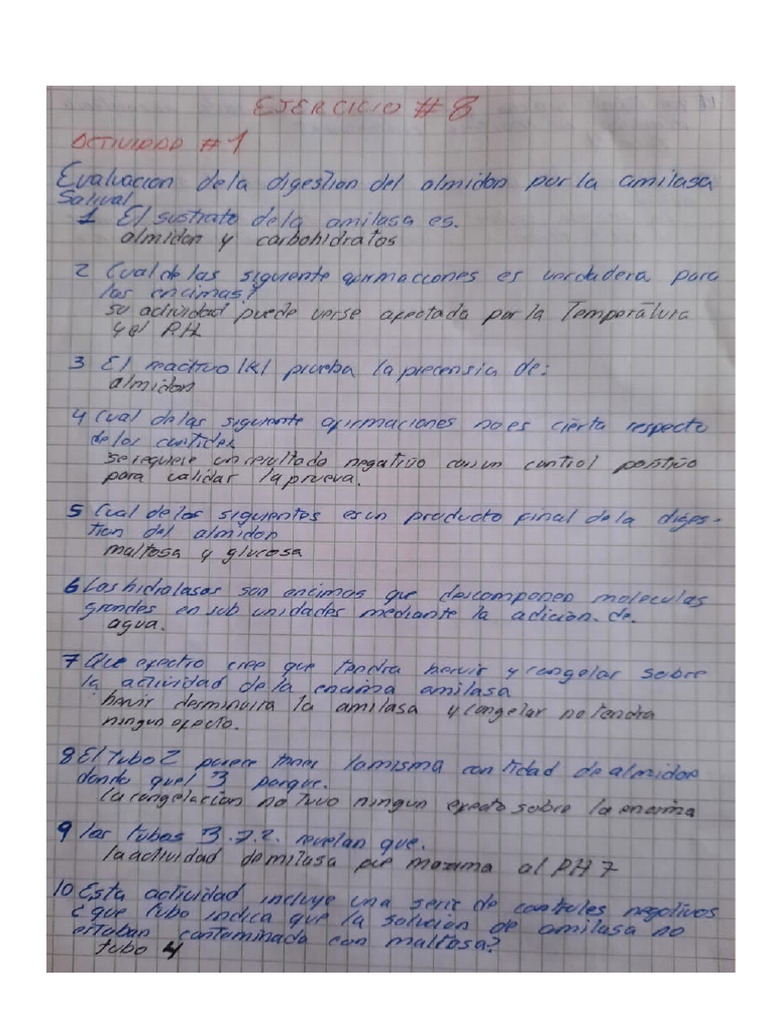 EJERCICIO # 8
ACTIVIDAD # 1
Evaluacion dela digestion del almidon por la amilasa
Salival
1 El sustrato dela amilasa es.
almidon y carbohidratos
2 Cual de las siguiente afirmacciones es verdadera para
las encimas?
su actividad puede verse afectada por la Temperatura
y el P.H
3 El reactivo IKI prueba la precensia de:
almidon
4 Cual de las siguiente afirmaciones no es cierta respecto
de los
se requiere un resultado negativo con un control positivo
para validar la prueva.
5 Cual de los siguientes es un producto final de la diges-
tion del almidon
maltosa y glucosa
6 Las hidrolasas son encimas que descomponen moleculas
grandes en sub unidades mediante la adicion. de.
agua.
7 Que efectro cree que tendra hervir y congelar sobre
la actividad de la encima amilasa
hervir derminuira la amilasa y congelar no tendra
ningun efecto.
8 El tubo 2 parece tener la misma cantidad de almidon
dando que l 3 porque.
la congelacion no tuvo ningun efecto sobre la encima
9 las tubos 3.7.2. revelan que.
la actividad de milasa fue maxima al PH 7
10 Esta actividad incluye una serie de controles negativos
¿ que tubo indica que la solucion de amilasa no
estaban contaminada con maltosa?
tubo 4